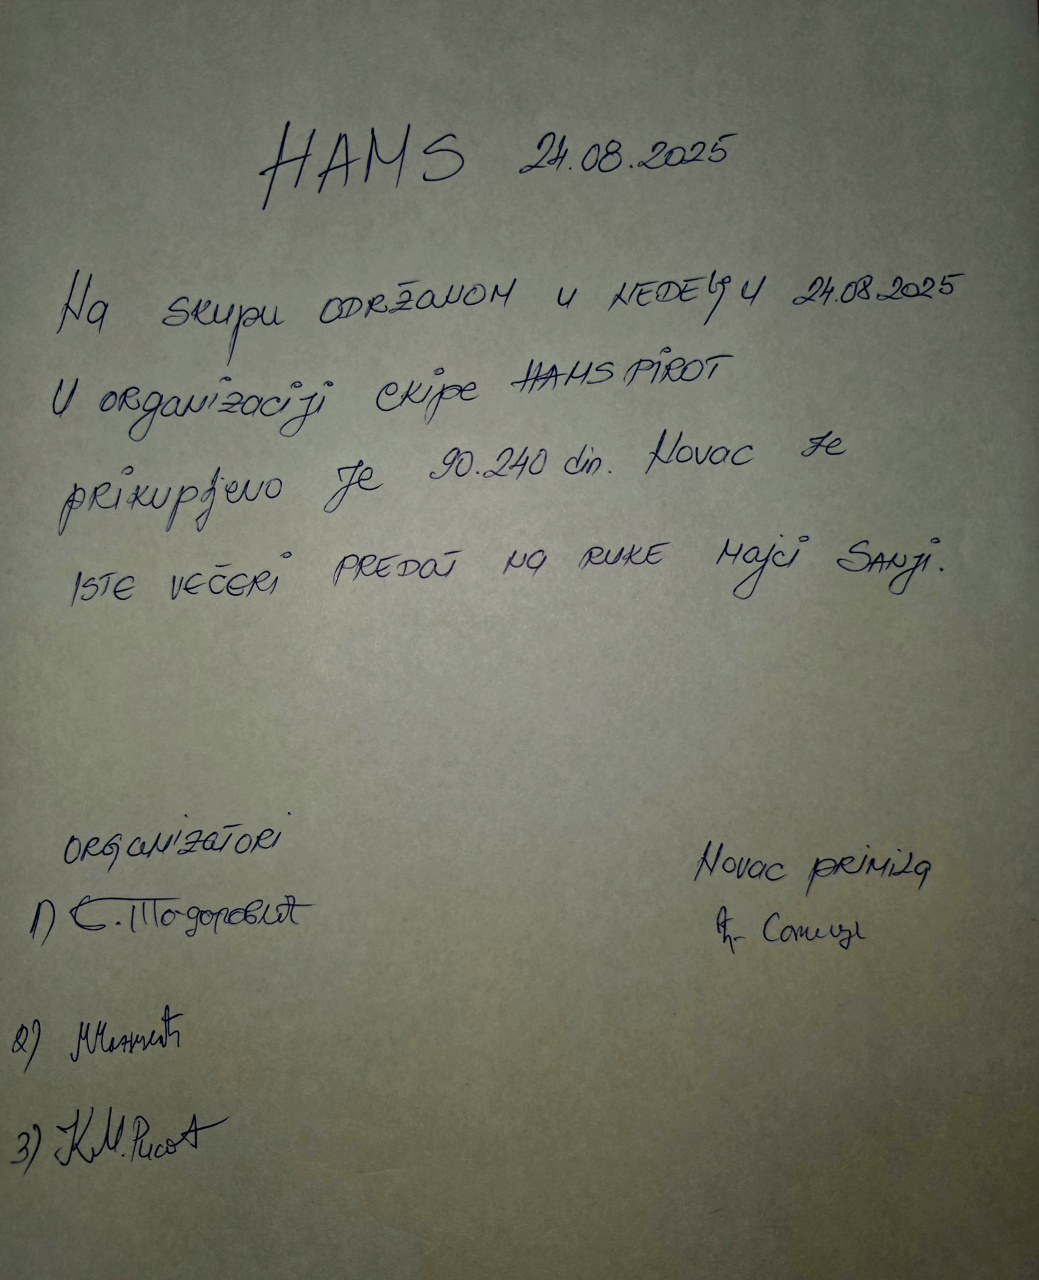 HAMS 24.08.2025
Na skupu održanom u nedelju 24.08.2025
U organizaciji ekipe HAMS PIROT
prikupljeno je 90.240 din. Novac je
iste večeri predat na ruke majci Sanji.
Organizatori
Novac primila
1) С. Тодоровић
2)
3) K.M.